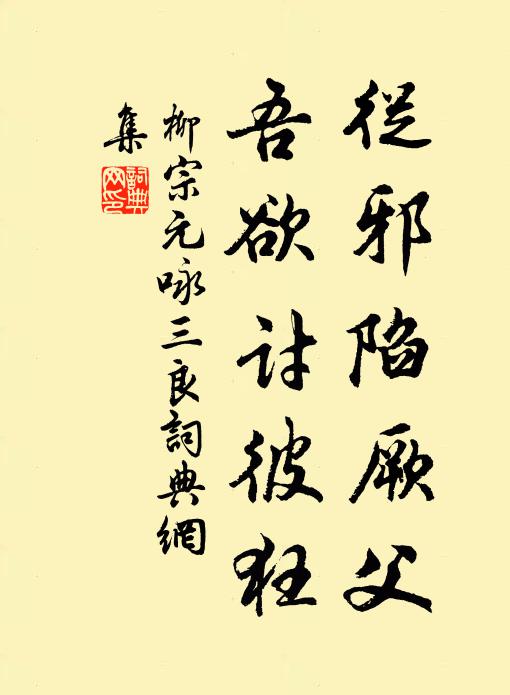 從邪陷厥父
吾欲討彼狂
柳宗元咏三良詞典網
集
詞典
网印